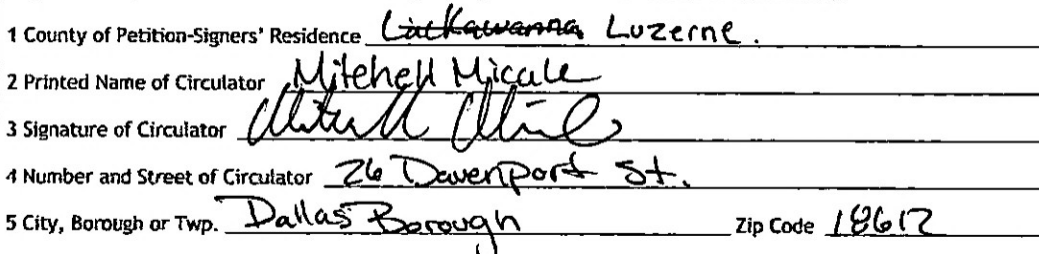 1 County of Petition-Signers' Residence Lackawanna Luzerne.
2 Printed Name of Circulator Mitchell Micale
3 Signature of Circulator
4 Number and Street of Circulator 26 Davenport St.
5 City, Borough or Twp. Dallas Borough Zip Code 18612